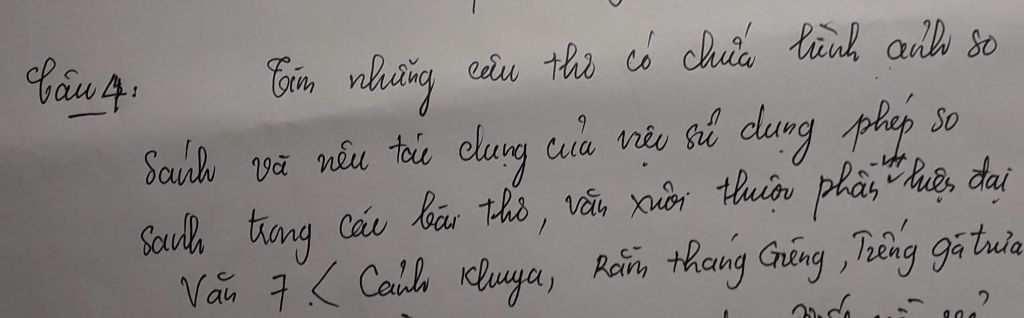 Câu 4: Tìm những câu thơ có chứa hình ảnh so
sánh và nêu tác dụng của việc sử dụng phép so
sánh trong các bài thơ, văn xuôi thuộc phần VH hiện đại
Văn 7 < Cảnh khuya, Rằm tháng Giêng, Tiếng gà trưa